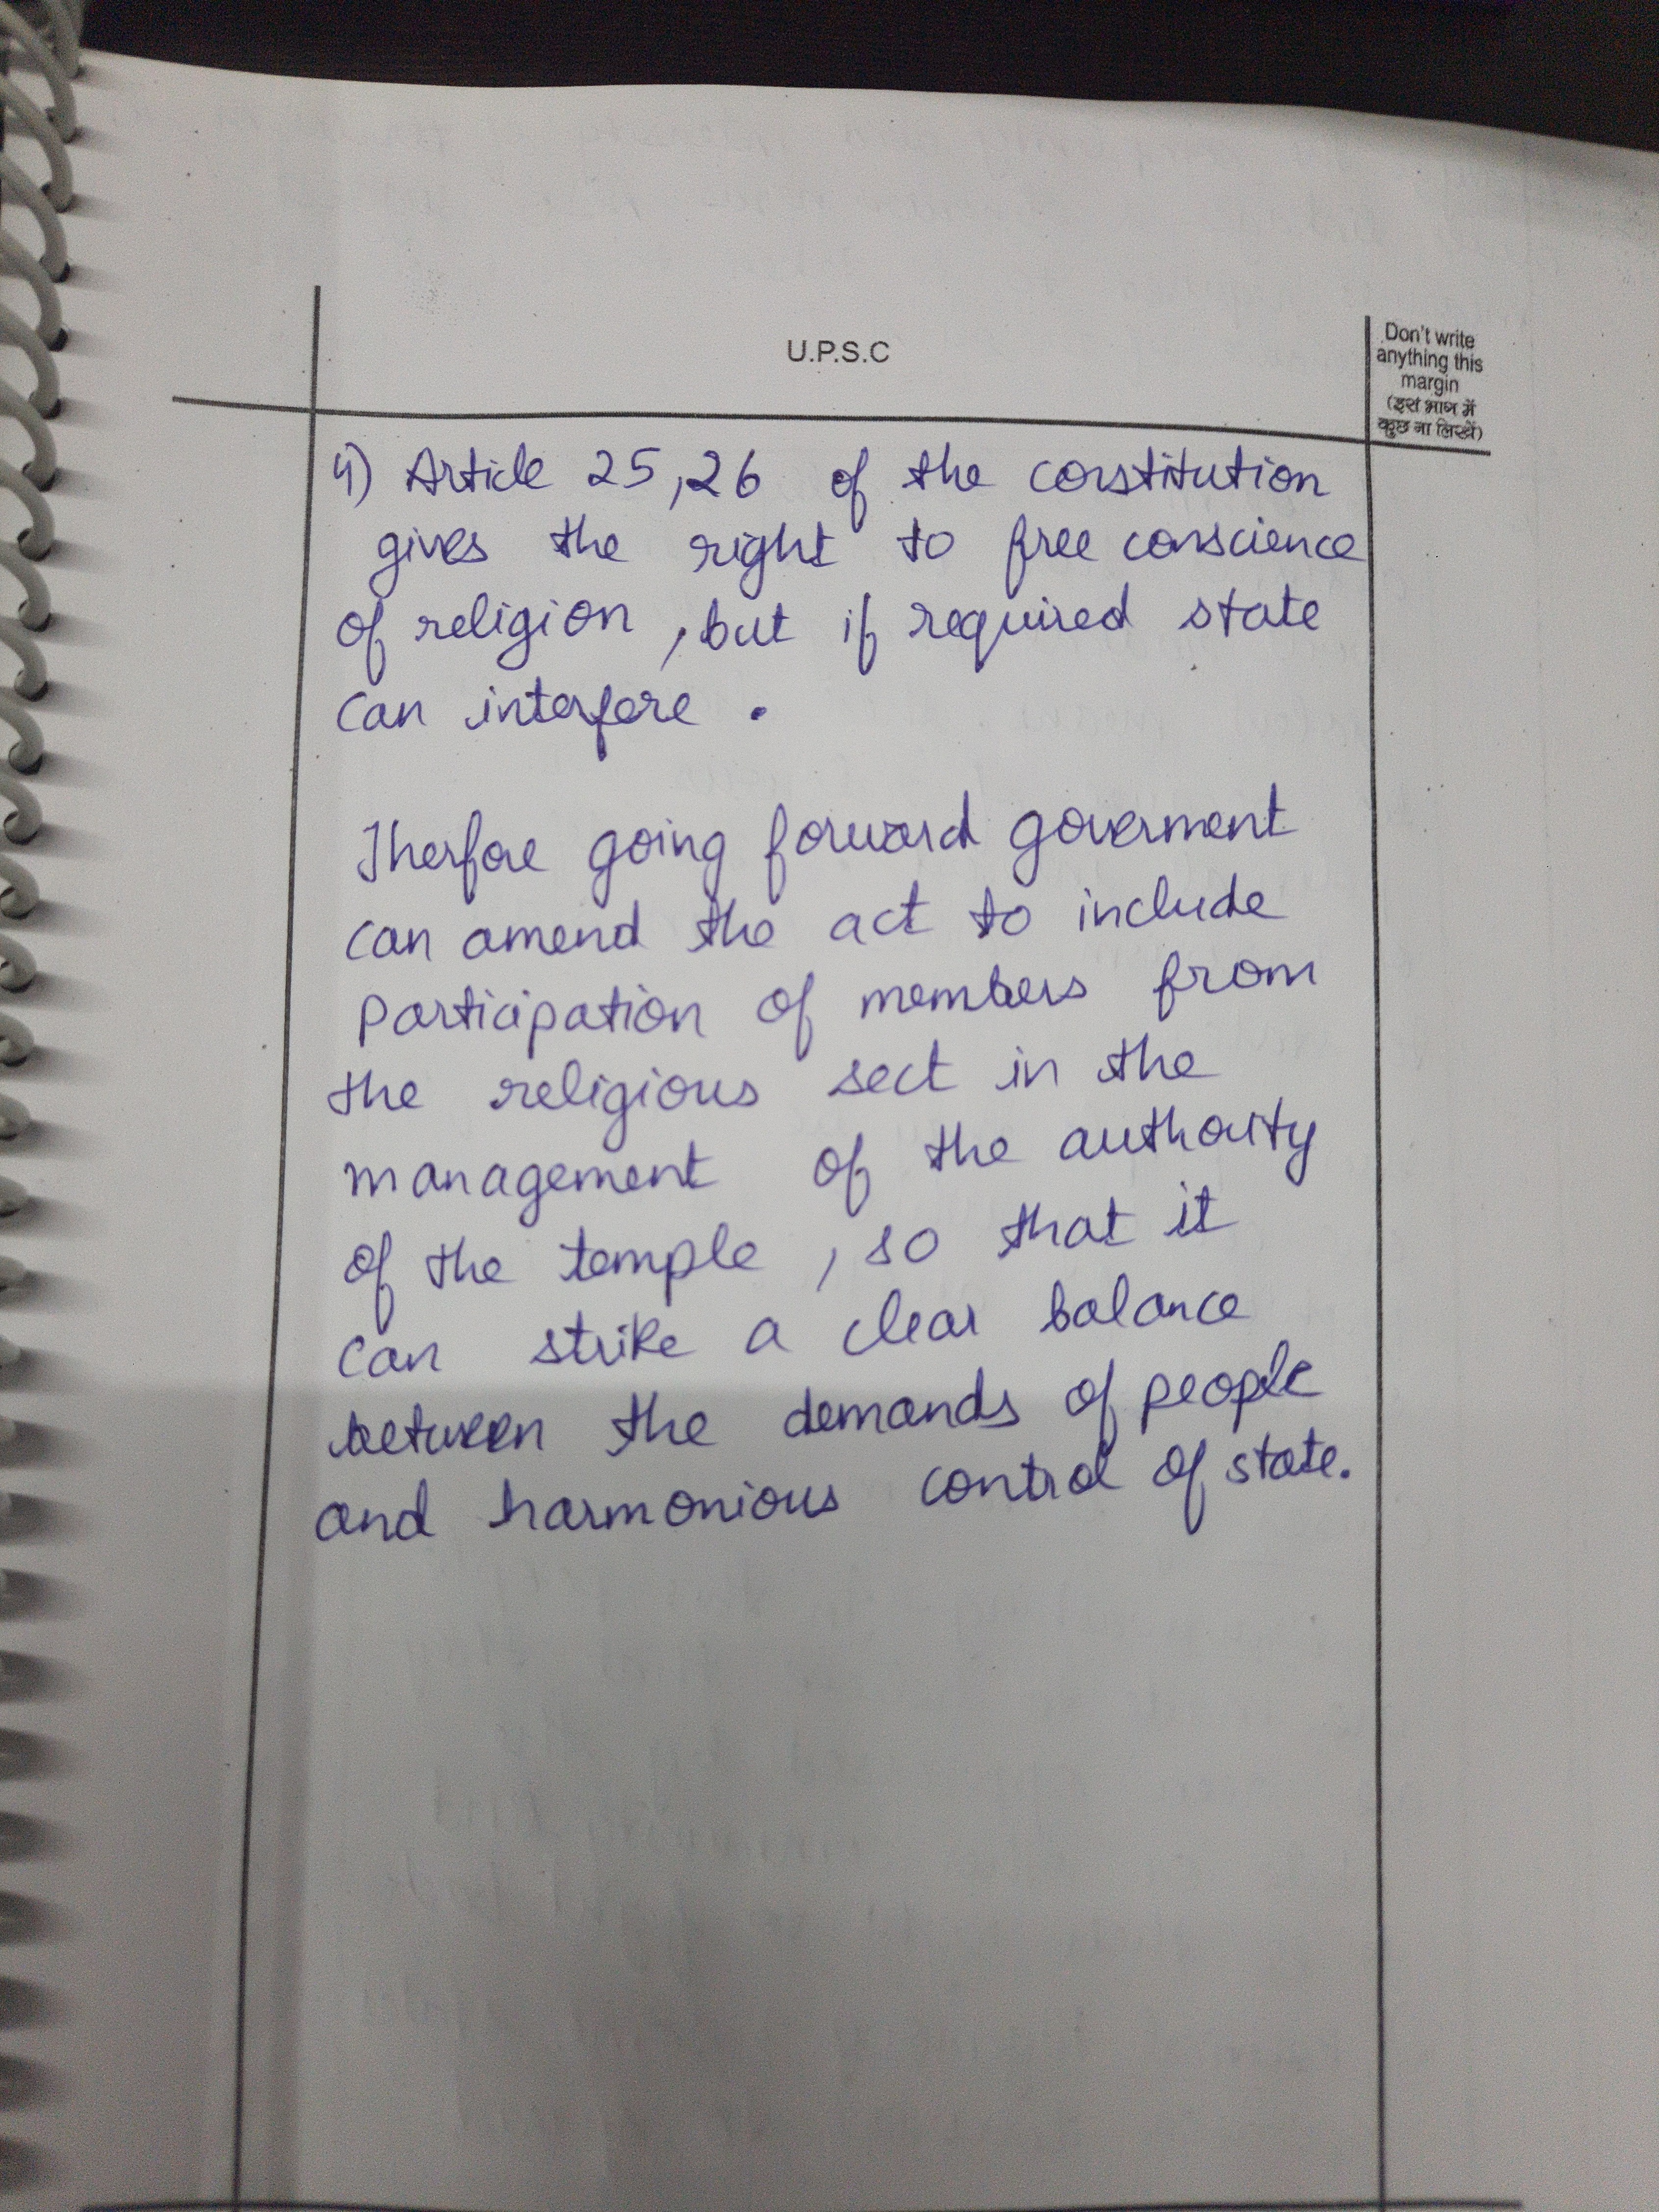 U.P.S.C
Don't write
anything this
margin
(इस भाग में
कुछ ना लिखें)
4) Article 25,26 of the constitution
gives the right to free conscience
of religion, but if required state
can interfere.
Therfore going forward goverment
can amend the act to include
participation of members from
the religious sect in the
management of the authority
of the temple, so that it
can strike a clear balance
between the demands of people
and harmonious control of state.